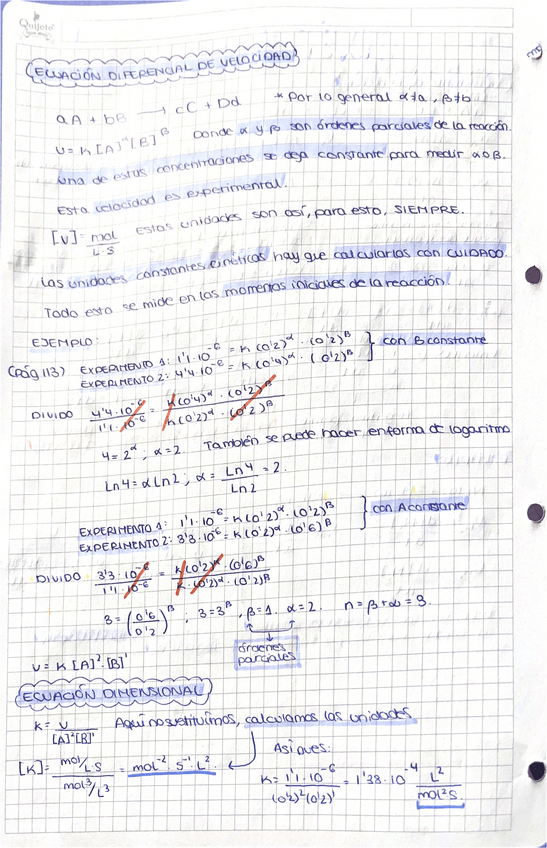 Quijote
ECUACIÓN DIFERENCIAL DE VELOCIDAD
aA + bB → cC + Dd * Por lo general α≠a, β≠b
v = K [A]^α [B]^β Donde α y β son órdenes parciales de la reacción.
Una de estas concentraciones se deja constante para medir α o β.
Esta velocidad es experimental.
[v] = mol/L·S Estas unidades son así, para esto, SIEMPRE.
Las unidades constantes cinéticas hay que calcularlas con CUIDADO.
Todo esto se mide en los momentos iniciales de la reacción.
EJEMPLO:
(Pág 113) EXPERIMENTO 1: 1'1·10^-6 = K (0'2)^α · (0'2)^β } con B constante
EXPERIMENTO 2: 4'4·10^-6 = K (0'4)^α · (0'2)^β
DIVIDO 4'4·10^-6 / 1'1·10^-6 = K(0'4)^α · (0'2)^β / K(0'2)^α · (0'2)^β
4 = 2^α ; α = 2. También se puede hacer en forma de logaritmo
Ln4 = α Ln2 ; α = Ln4/Ln2 = 2.
EXPERIMENTO 1: 1'1·10^-6 = K(0'2)^α · (0'2)^β } con A constante
EXPERIMENTO 2: 3'3·10^-6 = K(0'2)^α · (0'6)^β
DIVIDO 3'3·10^-6 / 1'1·10^-6 = K(0'2)^α · (0'6)^β / K·(0'2)^α · (0'2)^β
3 = (0'6/0'2)^β ; 3 = 3^β, β = 1. α = 2. n = β + α = 3.
órdenes
parciales
v = K [A]^2 · [B]^1
ECUACIÓN DIMENSIONAL
K = v/[A]^2[B]^1 Aquí no sustituímos, calculamos las unidades
[K] = mol/L·S / mol^3/L^3 = mol^-2 · S^-1 · L^2.
Así que:
K = 1'1·10^-6 / (0'2)^2(0'2)^1 = 1'38·10^-4 L^2/mol^2 S.